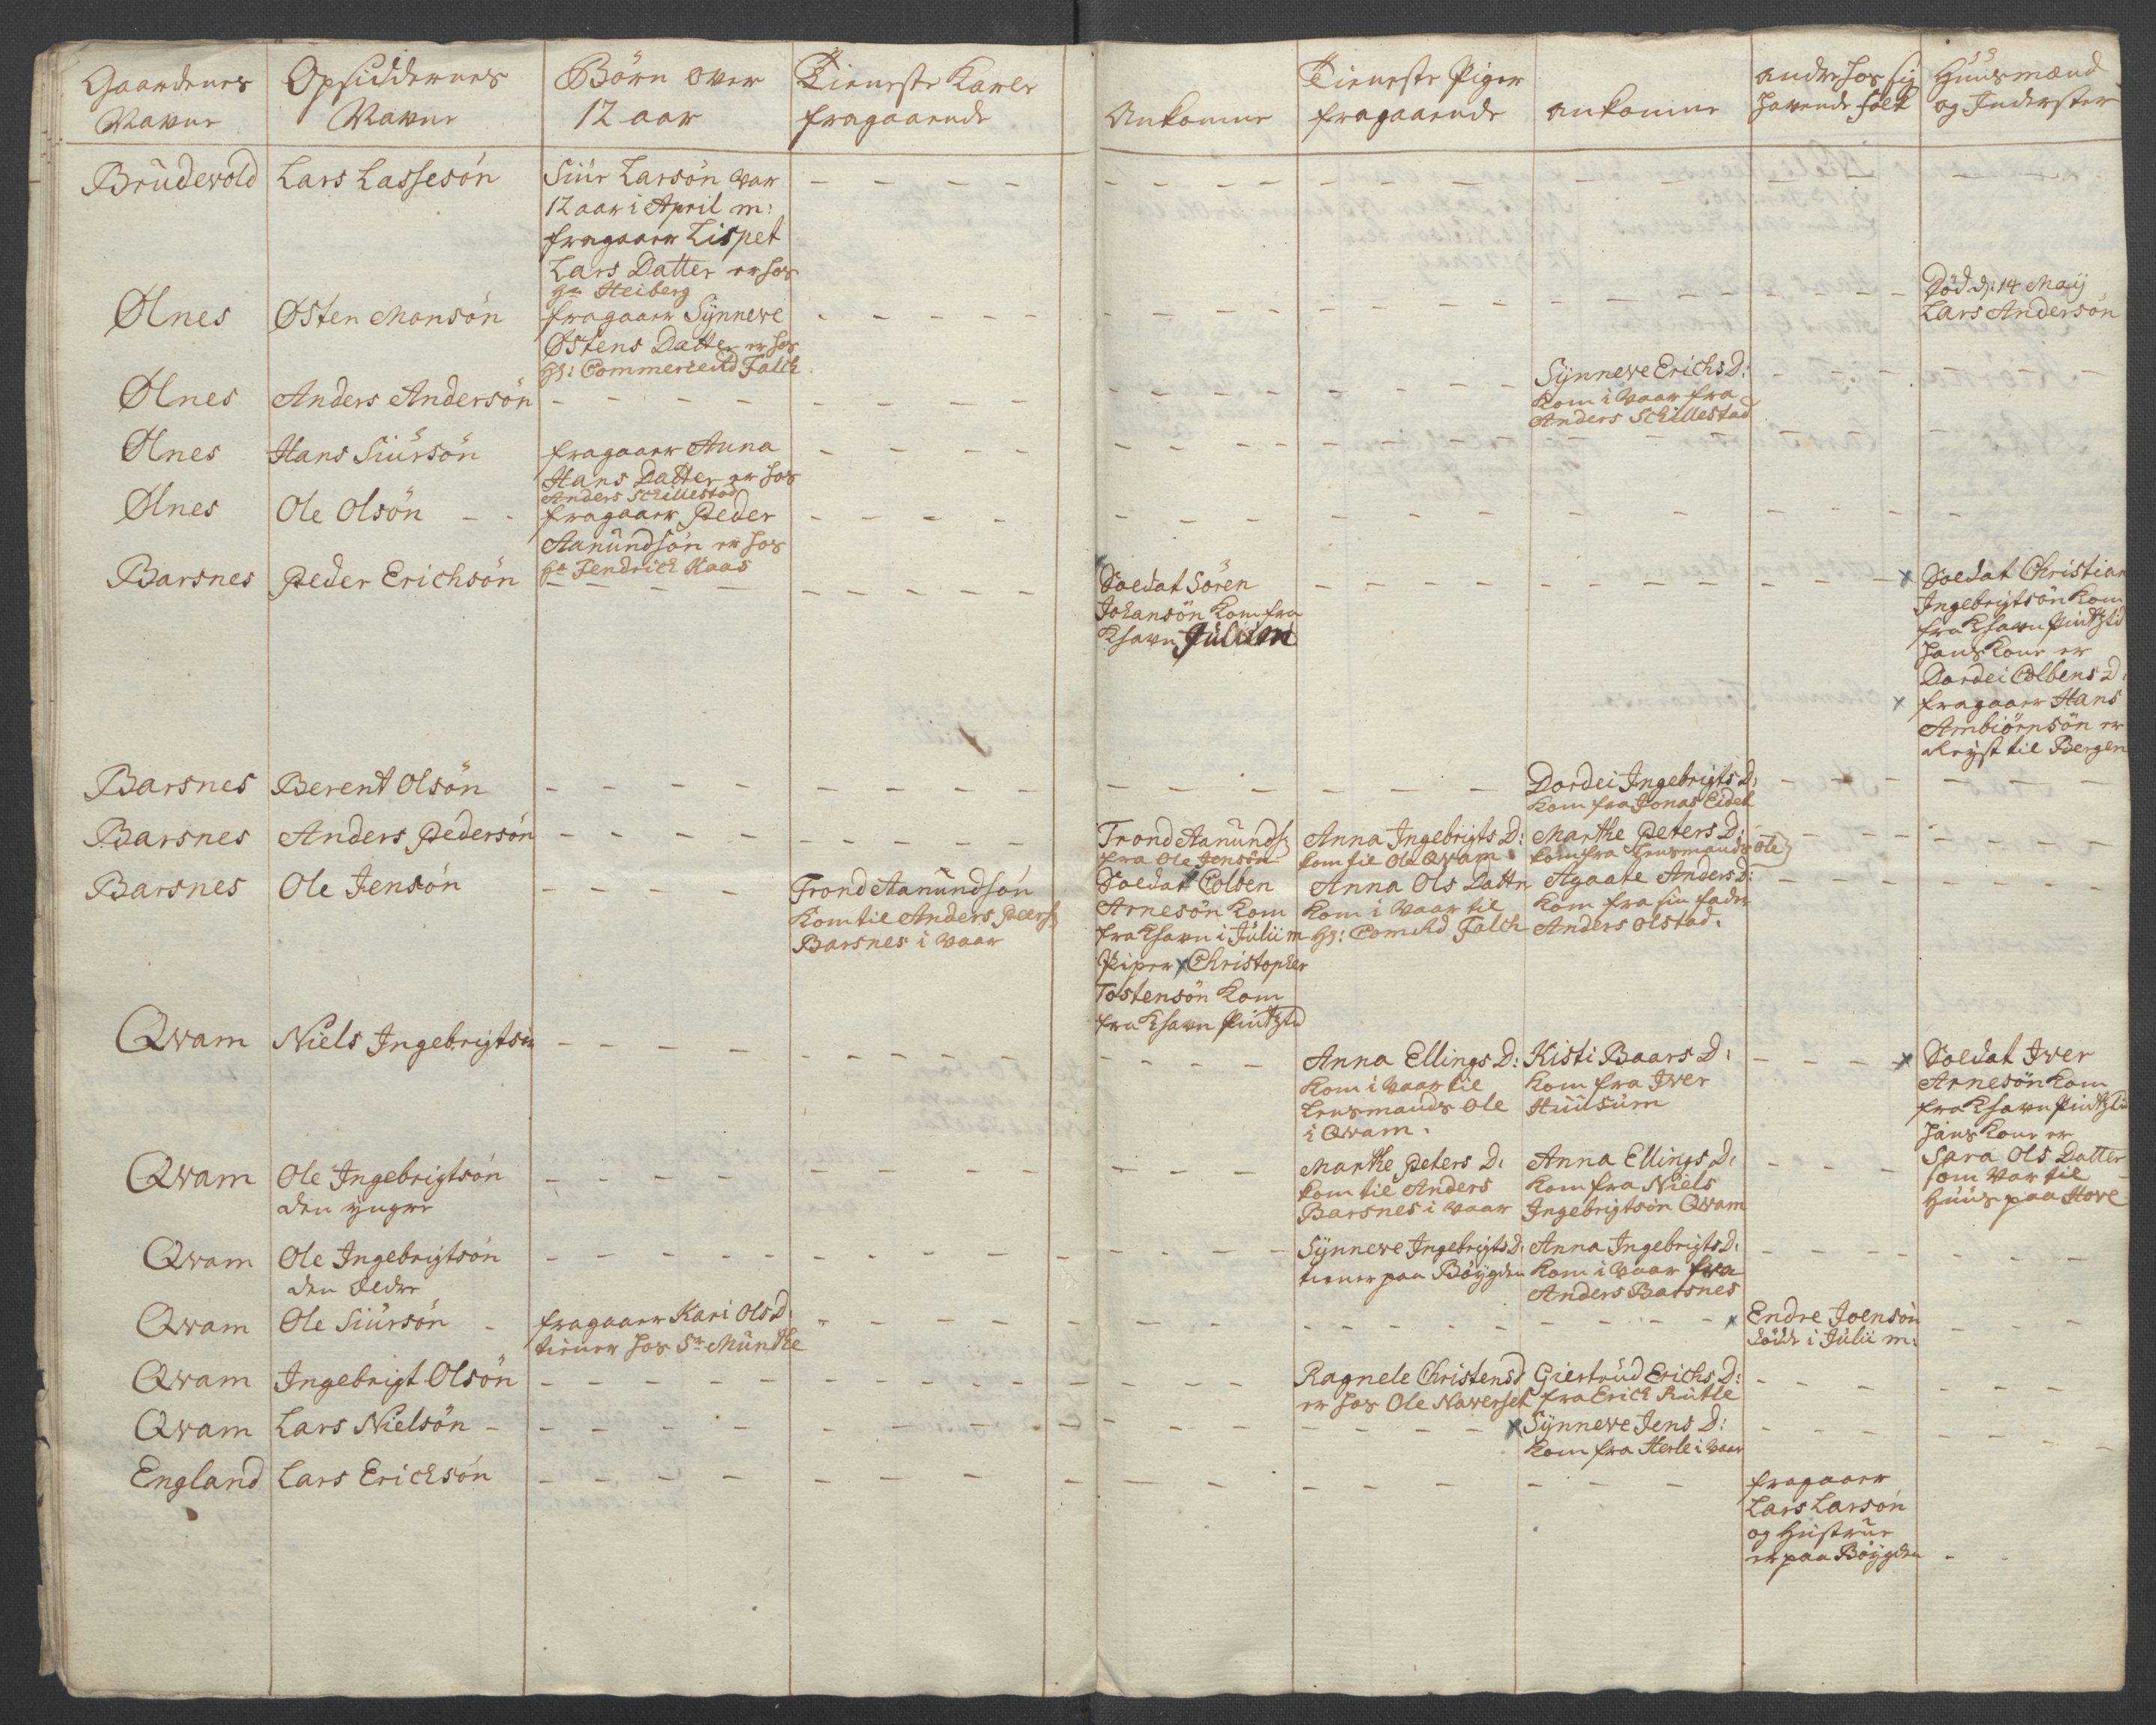 Gaardenes Navne
Opsiddernes Navne
Börn over 12 aar
Tieneste Karle fragaaende
Ankomne
Tieneste Piger fragaaende
ankomne
andre hos sig havende folk
Huusmænd og Inderster
Brüdevold
Lars Lassesön
Siür Larsön var
12 aar i April m:
fragaaer Lispet
Lars Datter er hos
Hr Heiberg
Ølnes
Østen Monsön
fragaaer Synneve
Østens Datter er hos
Hr: Commerceraad Falch
Död d: 14 Maij
Lars Andersön
Ølnes
Anders Andersön
Synneve Erichs D:
kom i Vaar fra
Anders Schillestad
Ølnes
Hans Siürsön
fragaaer Anna
Hans Datter er hos
Anders Schillestad
Ølnes
Ole Olsön
fragaaer Peder
Aanündsön er hos
Hr Fendrich Kaas
Barsnes
Peder Erichsön
Soldat Sören
Johansön kom fra
Khavn Julii m
x Soldat Christian
Ingebrigtsön kom
fra Khavn Pintztid
hans kone er
Dordei Colbens D:
x fragaaer Hans
Arnbiörnsön er
alreyst til Bergen
Barsnes
Berent Olsön
Dordei Ingebrigts D:
kom fra Jonas Eidet
Barsnes
Anders Pedersön
Trond Aanunds:
fra Ole Jensön
Anna Ingebrigts D:
kom til Ole Qvam
Marthe Peters D:
kom fra Lensmands Ole
Barsnes
Ole Jensön
Trond Aanündsön
kom til Anders Peers:
Barsnes i Vaar
Soldat x Colben
Arnesön kom
fra Khavn i Julii m
Piper x Christopher
Tostensön kom
fra Khavn Pintztid
Anna Ols Dattr
kom i Vaar til
Hr: Comrd Falch
Agaate Anders D:
kom fra sin fader
Anders Olstad.
Qvam
Niels Ingebrigtsön
Anna Ellings D:
kom i Vaar til
Lensmands Ole
i Qvam.
Kisti Baars D:
kom fra Iver
Hüüsüm
x Soldat Iver
Arnesön kom
fra Khavn Pintztid
hans kone er
Sara Ols Datter
som var til
Huus paa Hove
Qvam
Ole Ingebrigtsön
den yngre
Marthe Peters D:
kom til Anders
Barsnes i Vaar
Anna Ellings D:
kom fra Niels
Ingebrigtsön Qvam
Qvam
Ole Ingebrigtsön
den Eldre
Synneve Ingebrigts D:
tiener paa Böygden
Anna Ingebrigts D:
kom i Vaar fra
Anders Barsnes
Qvam
Ole Siürsön
fragaaer Kari Ols D:
tiener hos Sr Münthe
x Endre Joensön
döde i Julii m:
Qvam
Ingebrigt Olsön
Ragnele Christens D
er hos Ole Naverset
Giertrüd Erichs D:
fra Erich Rutle
Qvam
Lars Nielsön
x Synneve Jens D:
kom fra Herle i Vaar
England
Lars Ericksön
fragaaer
Lars Larsön
og Hustrue
er paa Böygden